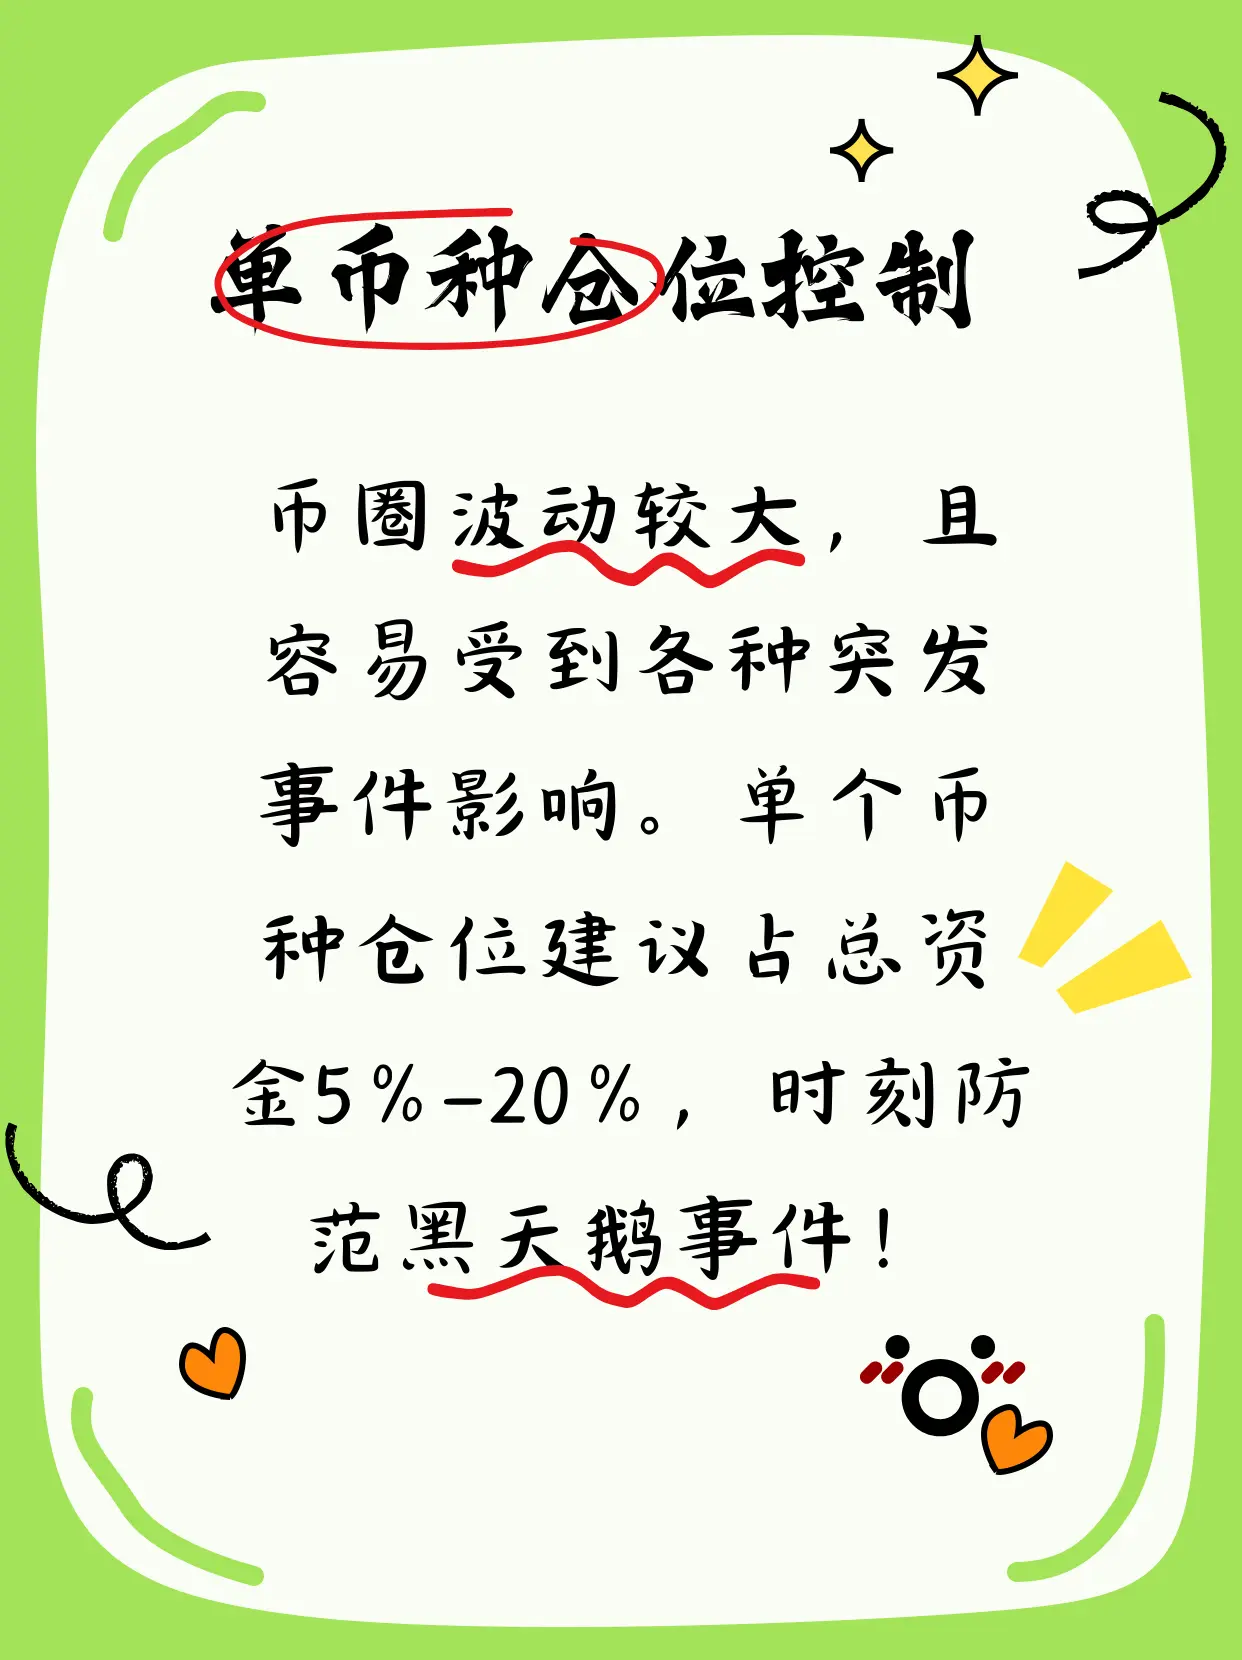 单币种仓位控制
币圈波动较大，且
容易受到各种突发
事件影响。单个币
种仓位建议占总资
金5%-20%，时刻防
范黑天鹅事件！